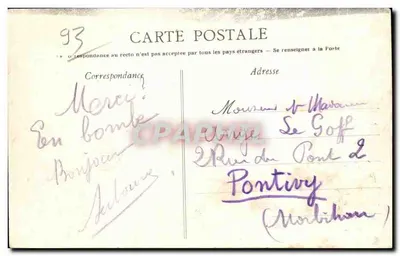 93
CARTE POSTALE
La Correspondance au recto n'est pas acceptée par tous les pays étrangers - Se renseigner à la Poste
Correspondance
Adresse
Merci!
En bombe
Bonjour
Monsieur et Madame
Le Goff
2 Rue du Pont 2
Pontivy
(Morbihan)
CPAREAMA